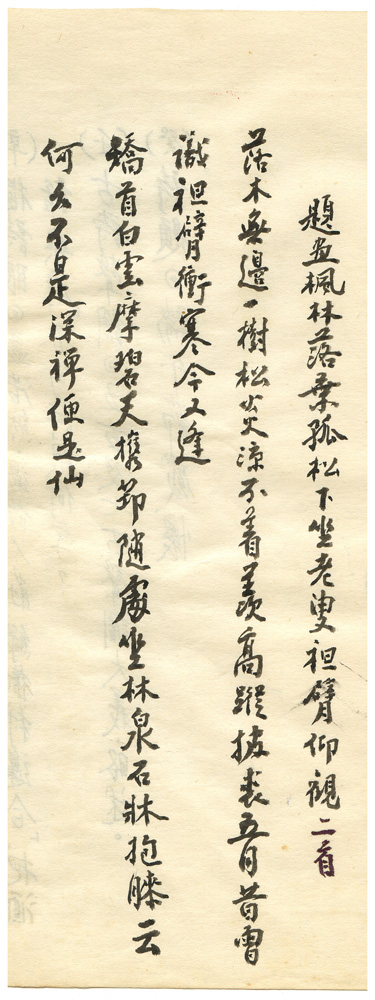 題畫楓林落葉孤松下坐老叟袒臂仰觀二首
落木無邊一樹松炎涼不着羨高蹤披裘五月昔曾
識袒臂衝寒今又逢
矯首白雲摩碧天携筇隨處坐林泉石牀抱膝云
何久不是深禪便是仙